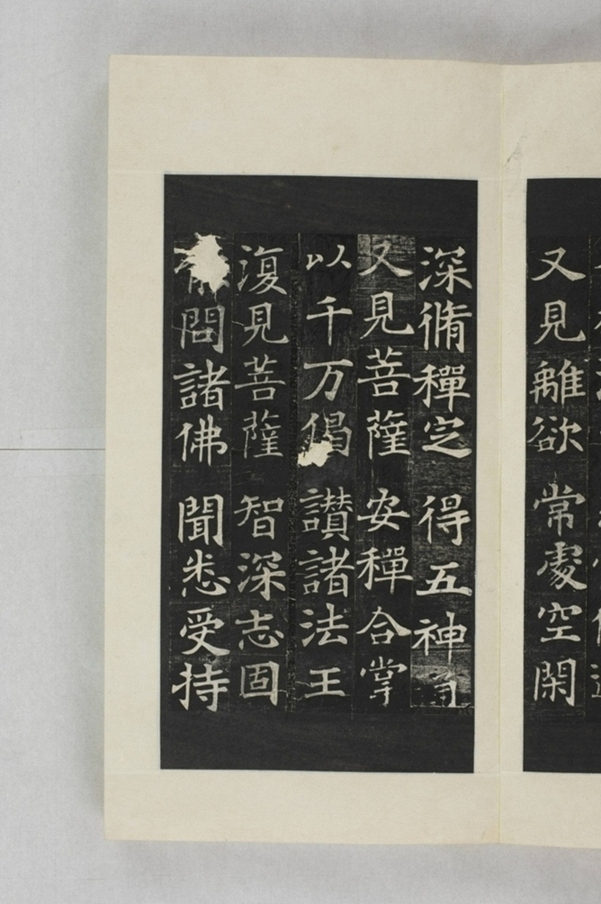 又見離欲 常處空閑
深脩禪定 得五神通
又見菩薩 安禪合掌
以千万偈 讃諸法王
復見菩薩 智深志固
問諸佛 聞悉受持